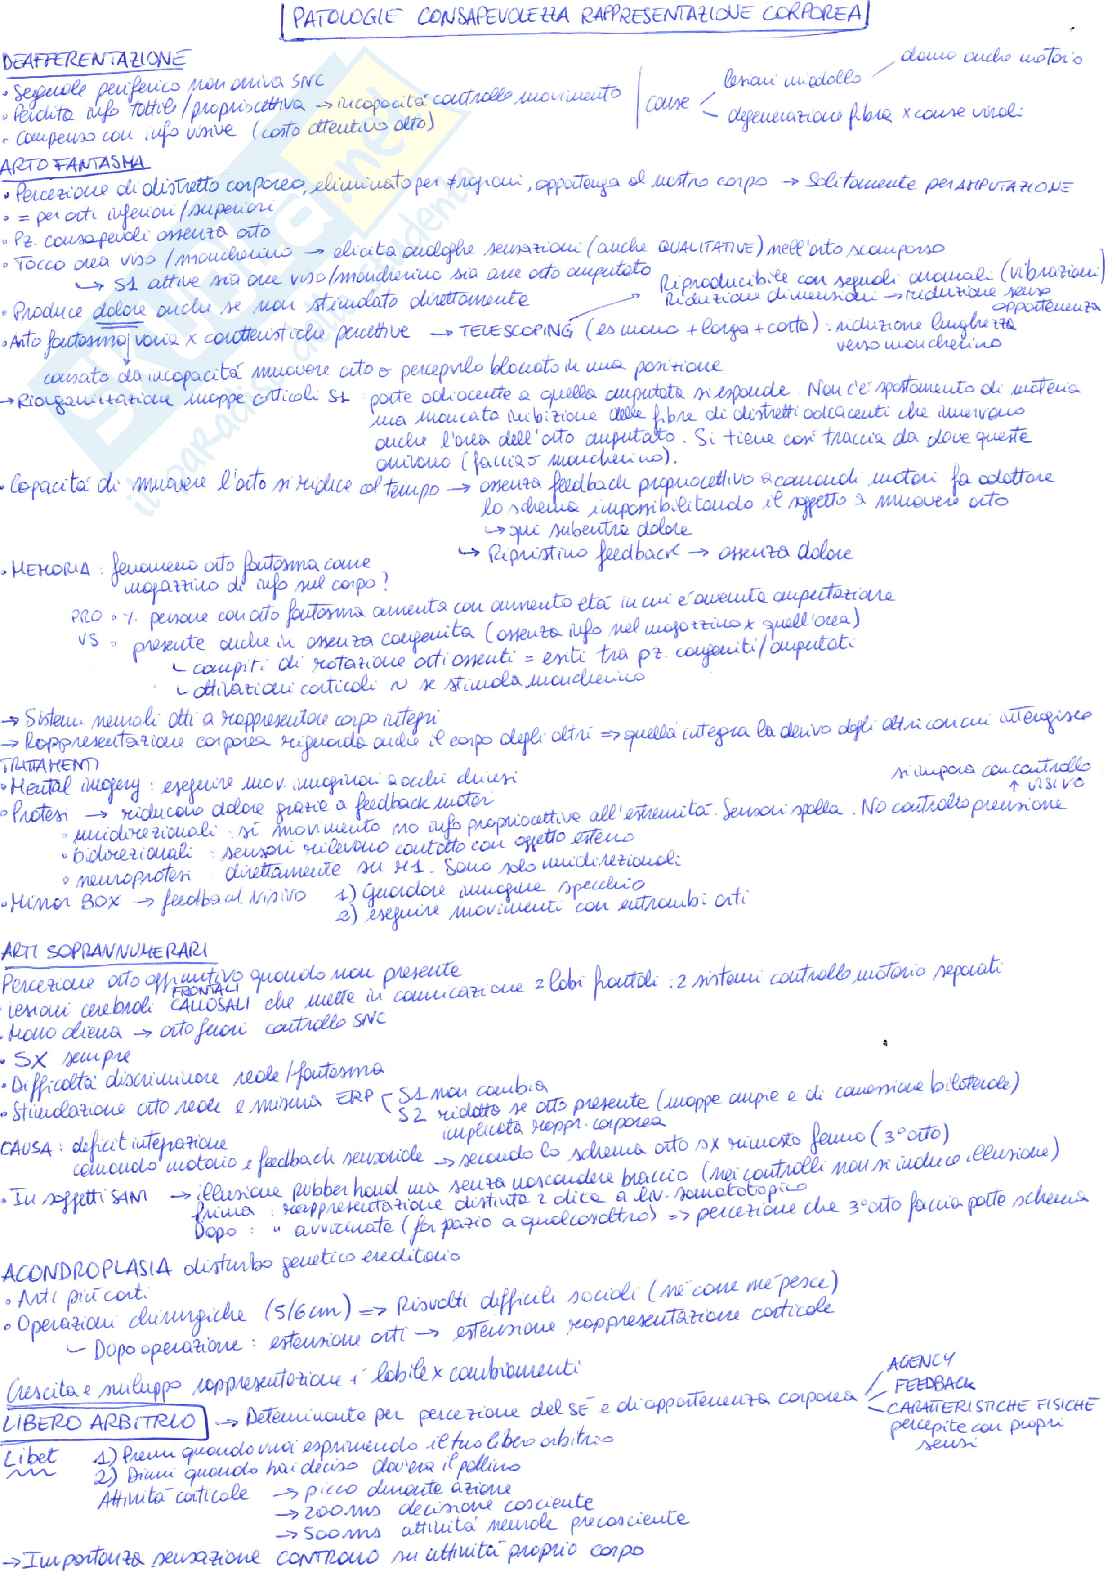 PATOLOGIE CONSAPEVOLEZZA RAPPRESENTAZIONE CORPOREA
DEAFFERENTAZIONE
• Segnale periferico non arriva SNC
• Perdita info tattile/propriocettiva → incapacità controllo movimento
• Compenso con info visive (costo attentivo alto)
cause
lesioni midollo
danno anche motorio
degenerazione fibra x cause virali
ARTO FANTASMA
• Percezione di distretto corporeo, eliminato per ≠ ragioni, appartenga al nostro corpo → Solitamente per AMPUTAZIONE
• = per arti inferiori/superiori
• Pz. consapevoli assenza arto
• Tocco area viso/moncherino → elicita analoghe sensazioni (anche QUALITATIVE) nell'arto scomparso
↳ S1 attive sia aree viso/moncherino sia aree arto amputato
• Produce dolore anche se non stimolato direttamente
Riproducibile con segnali anomali (vibrazioni)
Riduzione dimensioni → riduzione senso appartenenza
• Arto fantasma varia x caratteristiche percettive → TELESCOPING (es mano + larga + corta): riduzione lunghezza
verso moncherino
causato da incapacità muovere arto o percepirlo bloccato in una posizione
→ Riorganizzazione mappe corticali S1: parte adiacente a quella amputata si espande. Non c'è spostamento di materia
ma mancata inibizione delle fibre di distretti adiacenti che innervano
anche l'area dell'arto amputato. Si tiene così traccia da dove queste
arrivano (faccia o moncherino).
• Capacità di muovere l'arto si riduce col tempo → assenza feedback propriocettivo a comandi motori fa adattare
lo schema impossibilitando il soggetto a muovere arto
↳ qui subentra dolore
↳ Ripristino feedback → assenza dolore
• MEMORIA: fenomeno arto fantasma come
magazzino di info sul corpo?
PRO • % persone con arto fantasma aumenta con aumento età in cui è avvenuta amputazione
VS • presente anche in assenza congenita (assenza info nel magazzino x quell'area)
↳ compiti di rotazione arti assenti = esiti tra pz. congeniti/amputati
↳ attivazioni corticali ~ se stimola moncherino
→ Sistemi neurali atti a rappresentare corpo integri
→ Rappresentazione corporea riguarda anche il corpo degli altri ⇒ quella integra la derivo dagli altri con cui interagisco
TRATTAMENTI
• Mental imagery: eseguire mov. immaginari a occhi chiusi
• Protesi → riducono dolore grazie a feedback motori
si impara con controllo
↑ visivo
• unidirezionali: sì movimento no info propriocettiva all'estremità. Sensori spalla. No controllo pressione
• bidirezionali: sensori rilevano contatto con oggetto esterno
• neuroprotesi: direttamente su M1. Sono solo unidirezionali
• Mirror BOX → feedback visivo 1) guardare immagine specchio
2) eseguire movimenti con entrambi arti
ARTI SOPRANNUMERARI
Percezione arto aggiuntivo quando non presente
• Lesioni cerebrali CALLOSALI che mette in comunicazione 2 lobi frontali: 2 sistemi controllo motorio separati
FRONTALI
• Mano aliena → arto fuori controllo SNC
• SX sempre
• Difficoltà discriminare reale/fantasma
• Stimolazione arto reale e misura ERP
S1 non cambia
S2 ridotta se arto presente (mappe ampie e di connessione bilaterale)
implicata rappr. corporea
CAUSA: deficit integrazione
comando motorio e feedback sensoriale → secondo lo schema arto sx rimasto fermo (3° arto)
• In soggetti SANI → illusione rubber hand ma senza nascondere braccio (nei controlli non si induce illusione)
Prima: rappresentazione distinta 2 dita a liv. somatotopico
Dopo: " avvicinate (fa spazio a qualcos'altro) ⇒ percezione che 3° arto faccia parte schema
ACONDROPLASIA disturbo genetico ereditario
• Arti più corti
• Operazioni chirurgiche (5/6 cm) ⇒ Risvolti difficili sociali (né carne né pesce)
↳ Dopo operazione: estensione arti → estensione rappresentazione corticale
Crescita e sviluppo rappresentazione è labile x cambiamenti
LIBERO ARBITRIO → Determinante per percezione del SÉ e di appartenenza corporea
AGENCY
FEEDBACK
CARATTERISTICHE FISICHE
percepite con propri
sensi
Libet 1) Premi quando vuoi esprimendo il tuo libero arbitrio
2) Dimmi quando hai deciso dov'era il pallino
Attività corticale → picco durante azione
→ 200ms decisione cosciente
→ 500ms attività neurale precosciente
→ Importanza sensazione CONTROLLO su attività proprio corpo